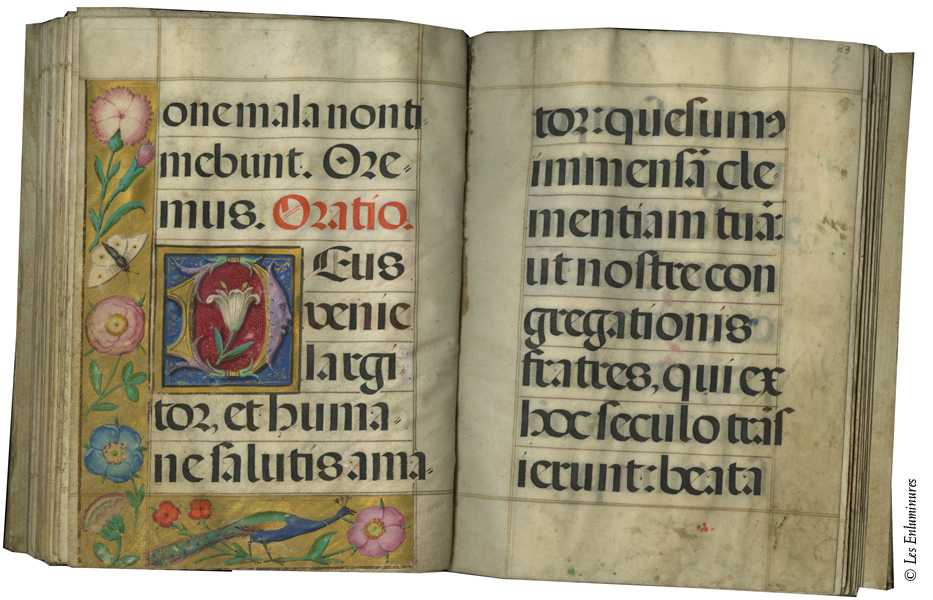 one mala non ti
mebunt. Ore-
mus. Oratio.
Deus
venie
largi
tor, et huma
ne salutis ama-
23
tor: quesumꝰ
immensā cle
mentiam tuā:
ut nostre con
gregationis
fratres, qui ex
hoc seculo trās
ierunt: beata
© Les Enluminures